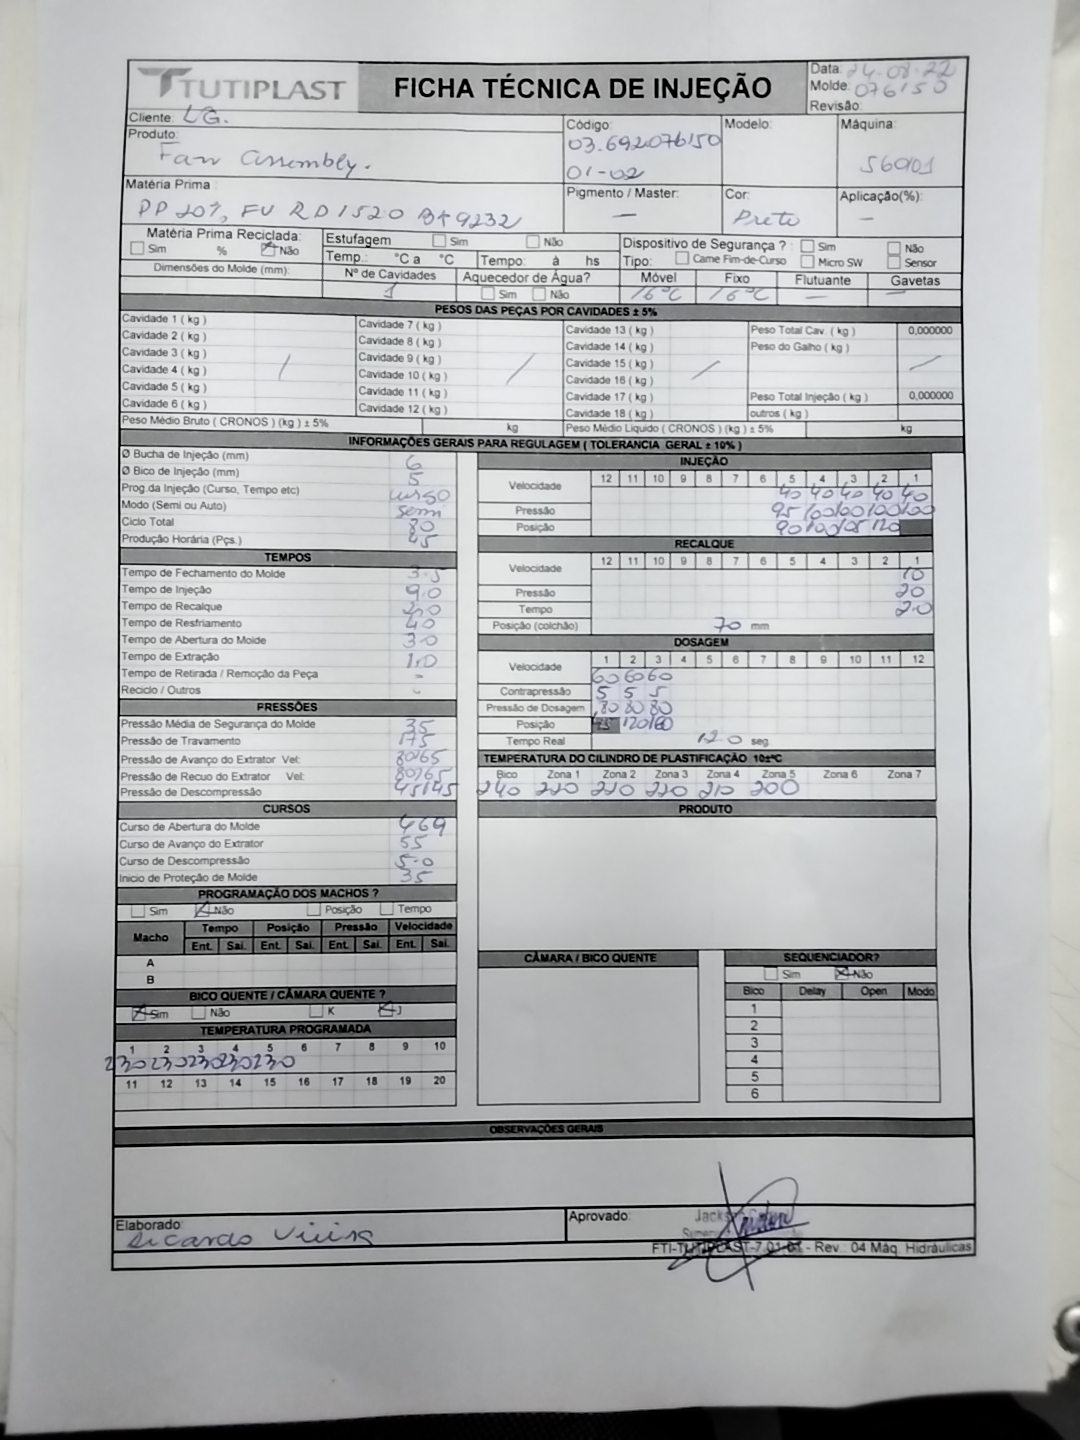 TUTIPLAST
FICHA TÉCNICA DE INJEÇÃO
Data: 24-08-22
Molde: 076150
Revisão:
Cliente: LG.
Produto:
Fan Assembly.
Código:
03.692076150
01-02
Modelo:
Máquina:
Matéria Prima :
PP 20%, FV RD1520
Pigmento / Master:
—
Cor:
Preto
Aplicação(%):
—
Matéria Prima Reciclada:
Sim % Não
Estufagem Sim Não
Temp.: °C a °C Tempo: à hs
Dispositivo de Segurança ? Sim Não
Tipo: Came Fim-de-Curso Micro SW Sensor
Dimensões do Molde (mm):
Nº de Cavidades
1
Aquecedor de Água?
Sim Não
Móvel Fixo Flutuante Gavetas
16°C 16°C — —
PESOS DAS PEÇAS POR CAVIDADES ± 5%
Cavidade 1 ( kg ) Cavidade 7 ( kg ) Cavidade 13 ( kg ) Peso Total Cav. ( kg ) 0,000000
Cavidade 2 ( kg ) Cavidade 8 ( kg ) Cavidade 14 ( kg ) Peso do Galho ( kg )
Cavidade 3 ( kg ) Cavidade 9 ( kg ) Cavidade 15 ( kg )
Cavidade 4 ( kg ) Cavidade 10 ( kg ) Cavidade 16 ( kg )
Cavidade 5 ( kg ) Cavidade 11 ( kg ) Cavidade 17 ( kg ) Peso Total Injeção ( kg ) 0,000000
Cavidade 6 ( kg ) Cavidade 12 ( kg ) Cavidade 18 ( kg ) outros ( kg )
Peso Médio Bruto ( CRONOS ) (kg ) ± 5% kg Peso Médio Liquido ( CRONOS ) ( kg ) ± 5% kg
INFORMAÇÕES GERAIS PARA REGULAGEM ( TOLERANCIA GERAL ± 10% )
Ø Bucha de Injeção (mm) 6
Ø Bico de Injeção (mm) 5
Prog.da Injeção (Curso, Tempo etc) curso
Modo (Semi ou Auto) semi
Ciclo Total 80
Produção Horária (Pçs.) 45
TEMPOS
Tempo de Fechamento do Molde 3.5
Tempo de Injeção 9.0
Tempo de Recalque 2.0
Tempo de Resfriamento 40
Tempo de Abertura do Molde 3.0
Tempo de Extração 1.0
Tempo de Retirada / Remoção da Peça -
Reciclo / Outros -
PRESSÕES
Pressão Média de Segurança do Molde 35
Pressão de Travamento 175
Pressão de Avanço do Extrator Vel: 80/65
Pressão de Recuo do Extrator Vel: 80/65
Pressão de Descompressão 45/45
CURSOS
Curso de Abertura do Molde 469
Curso de Avanço do Extrator 55
Curso de Descompressão 5.0
Inicio de Proteção de Molde 35
PROGRAMAÇÃO DOS MACHOS ?
Sim Não Posição Tempo
Macho Tempo Posição Pressão Velocidade
Ent. Sai. Ent. Sai. Ent. Sai. Ent. Sai.
A
B
BICO QUENTE / CÂMARA QUENTE ?
Sim Não K J
TEMPERATURA PROGRAMADA
1 2 3 4 5 6 7 8 9 10
230 230 230 230 230
11 12 13 14 15 16 17 18 19 20
INJEÇÃO
12 11 10 9 8 7 6 5 4 3 2 1
Velocidade 40 40 40 40 40
Pressão 95 100 100 100 100
Posição 90 100 105 120
RECALQUE
12 11 10 9 8 7 6 5 4 3 2 1
Velocidade 10
Pressão 20
Tempo 2.0
Posição (colchão) 70 mm
DOSAGEM
1 2 3 4 5 6 7 8 9 10 11 12
Velocidade 60 60 60
Contrapressão 5 5 5
Pressão de Dosagem 80 80 80
Posição 120 160
Tempo Real 12.0 seg
TEMPERATURA DO CILINDRO DE PLASTIFICAÇÃO 10±°C
Bico Zona 1 Zona 2 Zona 3 Zona 4 Zona 5 Zona 6 Zona 7
240 220 220 220 210 200
PRODUTO
CÂMARA / BICO QUENTE
SEQUENCIADOR?
Sim Não
Bico Delay Open Modo
1
2
3
4
5
6
OBSERVAÇÕES GERAIS
Elaborado:
Ricardo Vieira
Aprovado:
FTI-TUTIPLAST-7.01-01 - Rev.: 04 Máq. Hidráulicas